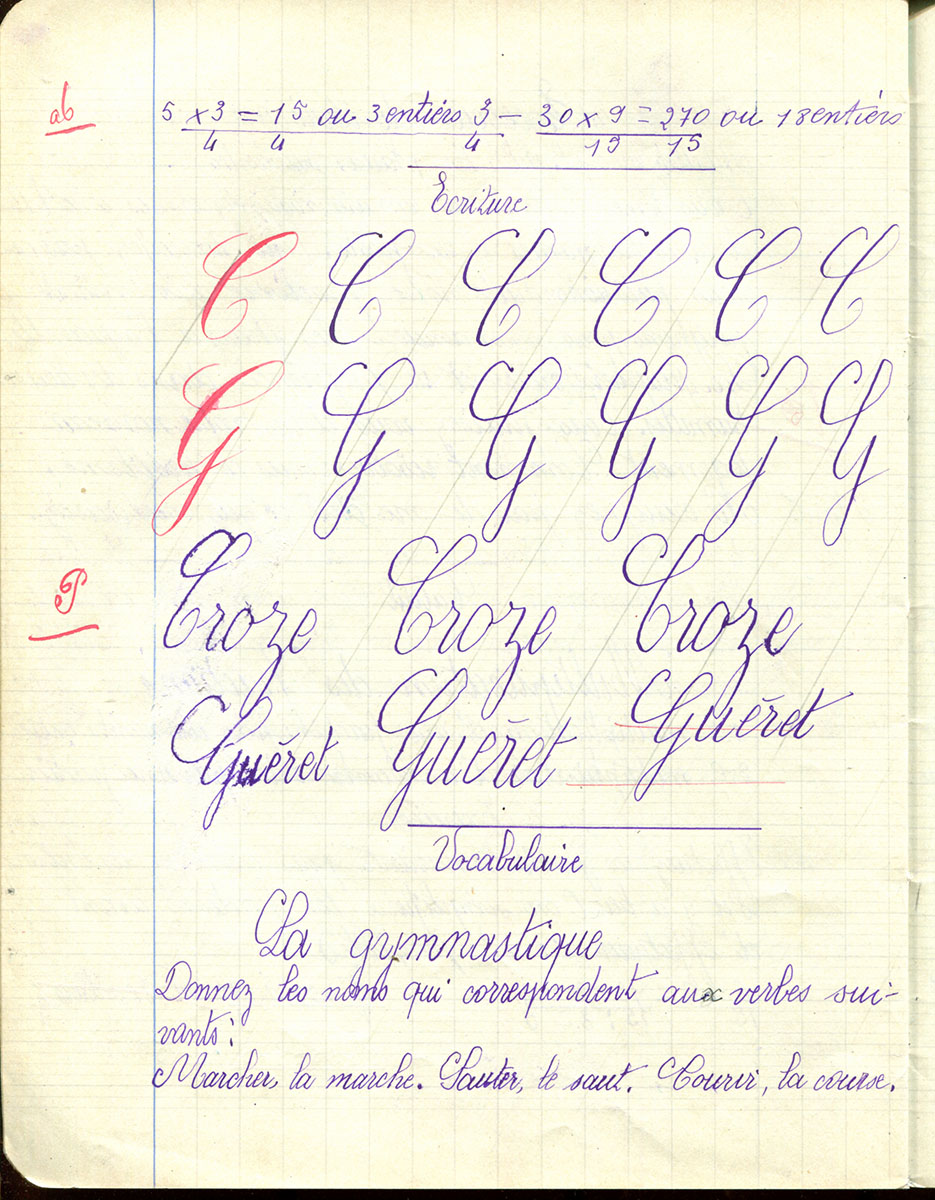 ab
5 × 3 = 15 ou 3 entiérs 3 — 30 × 9 = 270 ou 18 entiérs
4 4 4 15 15
Ecriture
C C C C C C
G G G G G G
Croze Croze Croze
Guéret Guéret Guéret
Vocabulaire
La gymnastique
Donnez les noms qui correspondent aux verbes sui-
vants:
Marcher, la marche. Sauter, le saut. Courir, la course.